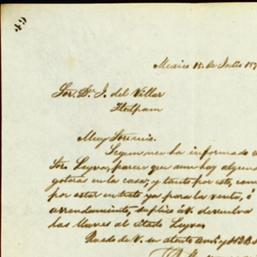 49
Mexico 12 de Julio 187
Sor. Dn. J. del Villar
Tlalpam
Muy Sor. mio.
Segun me ha informado e
Sor. Leyva, parece que aun hay alguna
gotera en la casa, y tanto por esto, com
por estar en trato ya para la venta, ó
arrendamiento, suplico á V. devuelva
las llaves al citado Leyva
Quedo de V. su atento Amº. y S.S.